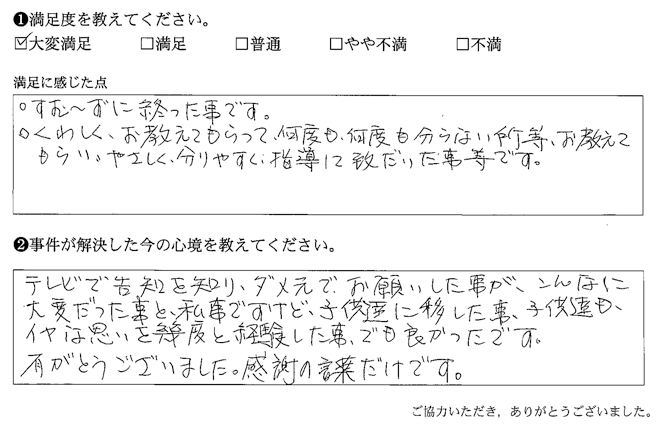 ❶満足度を教えてください。
☑大変満足 □満足 □普通 □やや不満 □不満
満足に感じた点
○すむ〜ずに終った事です。
○くわしく、お教えてもらって、何度も、何度も分らない所等、お教えて
もらい、やさしく、分りやすく、指導して致だいた事等です。
❷事件が解決した今の心境を教えてください。
テレビで告知を知り、ダメ元でお願いした事が、こんなに
大変だった事と、私事ですけど、子供達に移した事、子供達も、
イヤな思いを幾度と経験した事、でも良かったです。
有がとうございました。感謝の言葉だけです。
ご協力いただき，ありがとうございました。